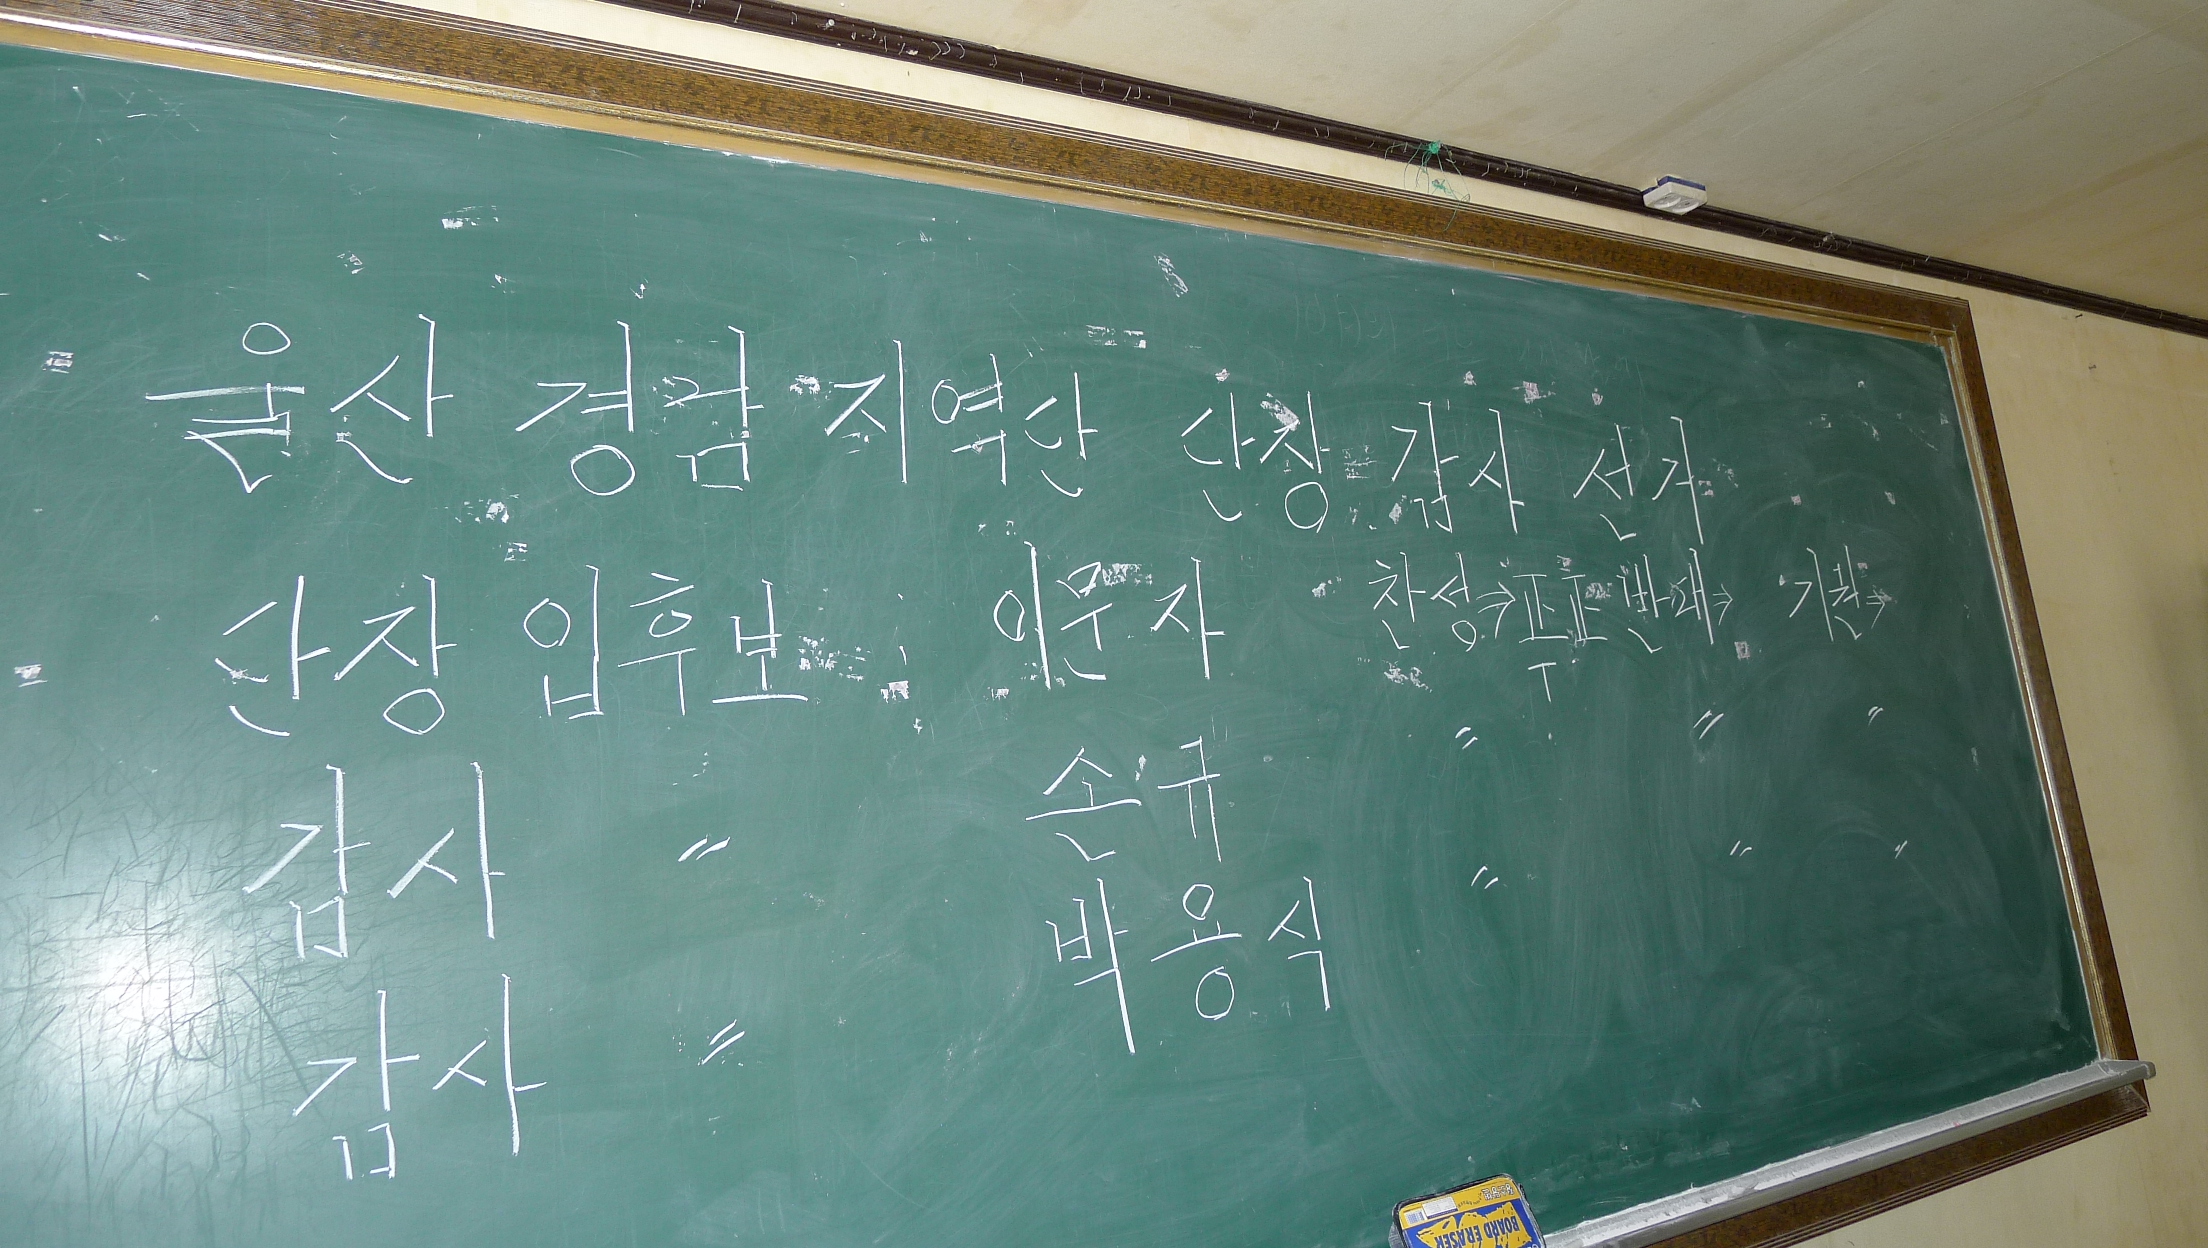 울산 경람 지역단 단장 감사 선거
단장 입후보 : 이문자 찬성⇒正正T 반대⇒ 기권⇒
감사 〃 손규 〃 〃 〃
감사 〃 박용식 〃 〃 〃
BOARD ERASER